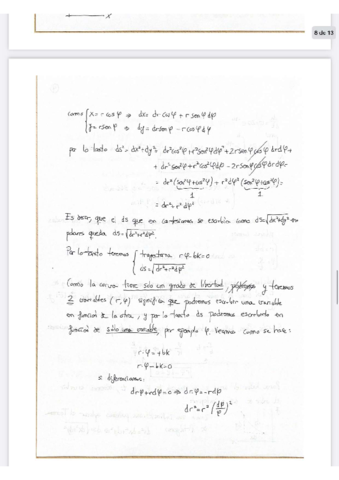 8 de 13
como { x = r cos φ ⇒ dx = dr cos φ + r sen φ dφ
y = r sen φ ⇒ dy = dr sen φ - r cos φ dφ
por lo tanto ds² = dx² + dy² = dr² cos² φ + r² sen² φ dφ² + 2r sen φ cos φ dr dφ +
+ dr² sen² φ + r² cos² φ dφ - 2r sen φ cos φ dr dφ =
= dr² (sen² φ + cos² φ) + r² dφ² (sen² φ + cos² φ) =
1 1
= dr² + r² dφ²
Es decir, que el ds que en cartesianas se escribía como ds = √dx² + dy² en
polares queda ds = √dr² + r² dφ².
Por lo tanto tenemos { trayectoria r φ - bk = 0
ds = √dr² + r² dφ²
Como la curva tiene sólo un grado de libertad, y tenemos
2 variables (r, φ) significa que podremos escribir una variable
en función de la otra, y por lo tanto ds podremos escribirlo en
función de sólo una variable, por ejemplo φ. Veamos como se hace:
r · φ = + bk
r φ - bk = 0
si diferenciamos:
dr φ + r dφ = 0 ⇒ dr φ = - r dφ
dr² = r² (dφ/φ)²